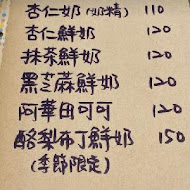 杏仁奶(奶精) 110
杏仁鮮奶 120
抹茶鮮奶 120
黑芝蔴鮮奶 120
阿華田可可 120
酪梨布丁鮮奶 150
(季節限定)